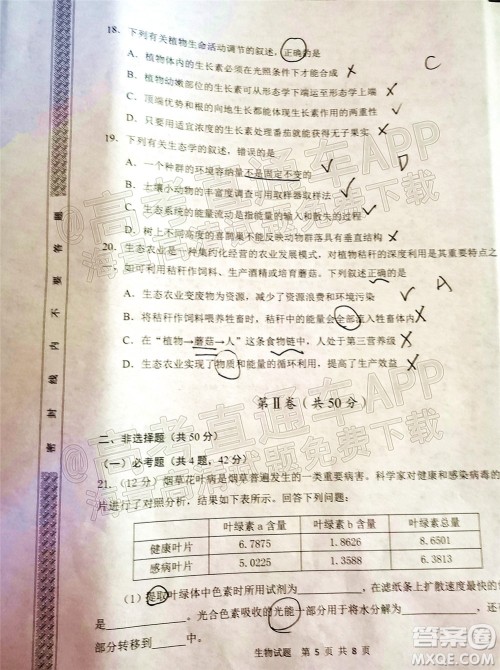 18. 下列有关植物生命活动调节的叙述，正确的是
C
A. 植物体内的生长素必须在光照条件下才能合成 ×
B. 植物幼嫩部位的生长素可以从形态学下端运至形态学上端 ×
C. 顶端优势和根的向地生长都能体现生长素作用的两重性 ✓
D. 只要用适宜浓度的生长素处理番茄就能获得无子果实 ×
19. 下列有关生态学的叙述，错误的是
A. 一个种群的环境容纳量是不固定不变的
B. 土壤小动物的丰富度可用取样器取样法
C. 生态系统的能量流动是指能量的输入和散失的过程
D. 树上不同高度的喜鹊巢反映出群落的垂直结构 ×
20. 生态农业是一种集约化经营的农业发展模式，对植物秸秆的深度利用是其重要特点之
一，如可利用秸秆作饲料、生产酒精或培育蘑菇。下列叙述正确的是
A
A. 生态农业变废为资源，减少了资源浪费和环境污染 ✓
B. 将秸秆作饲料喂养牲畜时，秸秆中的能量会全部流入牲畜体内 ×
C. 在“植物→蘑菇→人”这条食物链中，人处于第三营养级 ×
D. 生态农业实现了物质和能量的循环利用，提升了生产效益 ×
第Ⅱ卷（共50分）
二、非选择题（共50分）
（一）必考题（共4题，42分）
21. （12分）烟草花叶病是烟草普遍发生的一类病害。科学家对健康和感染病毒的
片进行了对照分析，结果如下表所示。回答下列问题：
叶绿素a含量 叶绿素b含量 叶绿素总量
健康叶片 6.7875 1.8626 8.6501
感病叶片 5.0225 1.3588 6.3813
（1）提取叶绿体中色素时所用试剂为________，在滤纸条上扩散速度最快的
是________。光合色素吸收的光能一部分用于将水分解为________，
部分转移到________中。
生物试题 第5页 共8页
密封线内不要答题
@高考直通车APP
海量试题免费下载
@高考直通车APP
海量试题免费下载
答案圈
MXQE.COM